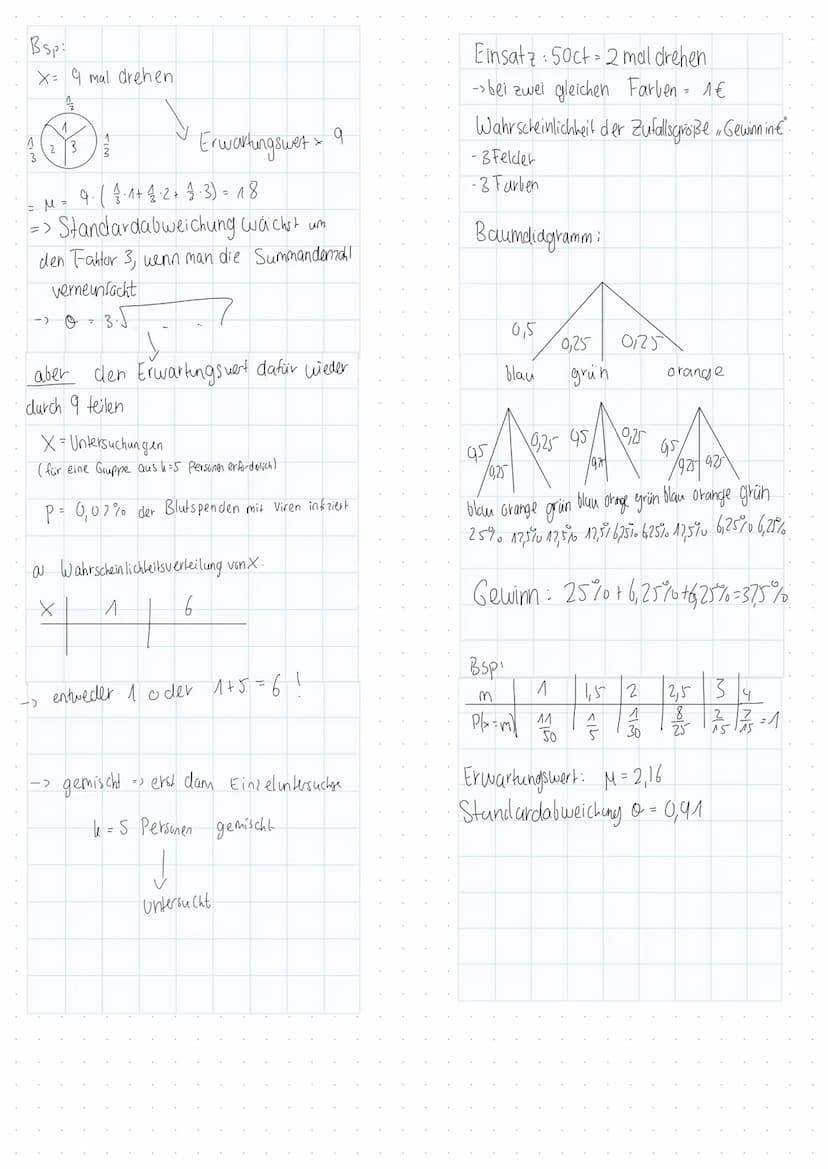 Bsp:
X = 9 mal drehen
1/3
1/3 1 2 3 1/3
Erwartungswert × 9
= μ = 9 · (1/3 · 1 + 1/3 · 2 + 1/3 · 3) = 18
=> Standardabweichung wächst um
den Faktor 3, wenn man die Summandenzahl
verneunfacht
-> σ = 3·√ . . .
aber den Erwartungswert dafür wieder
durch 9 teilen
X = Untersuchungen
(für eine Gruppe aus k=5 Personen erforderlich)
P = 0,07% der Blutspenden mit Viren infiziert
a) Wahrscheinlichkeitsverteilung von X.
X | 1 | 6
-> entweder 1 oder 1+5 = 6 !
-> gemischt -> erst dann Einzeluntersuchge
k = 5 Personen gemischt
untersucht
Einsatz : 50ct = 2 mal drehen
-> bei zwei gleichen Farben = 1€
Wahrscheinlichkeit der Zufallsgröße „Gewinn in €"
- 3 Felder
- 3 Farben
Baumdiagramm :
0,5 0,25 0,25
blau grün orange
0,5 0,25 0,25 0,5 0,25 0,5 0,25 0,25
blau orange grün blau orange grün blau orange grün
25% 12,5% 12,5% 12,5% 6,25% 6,25% 12,5% 6,25% 6,25%
Gewinn : 25% + 6,25% + 6,25% = 37,5%
Bsp:
m | 1 | 1,5 | 2 | 2,5 | 3 | 4
P(x=m) | 11/50 | 1/5 | 1/30 | 8/25 | 2/15 | 2/15 = 1
Erwartungswert: μ = 2,16
Standardabweichung σ = 0,91